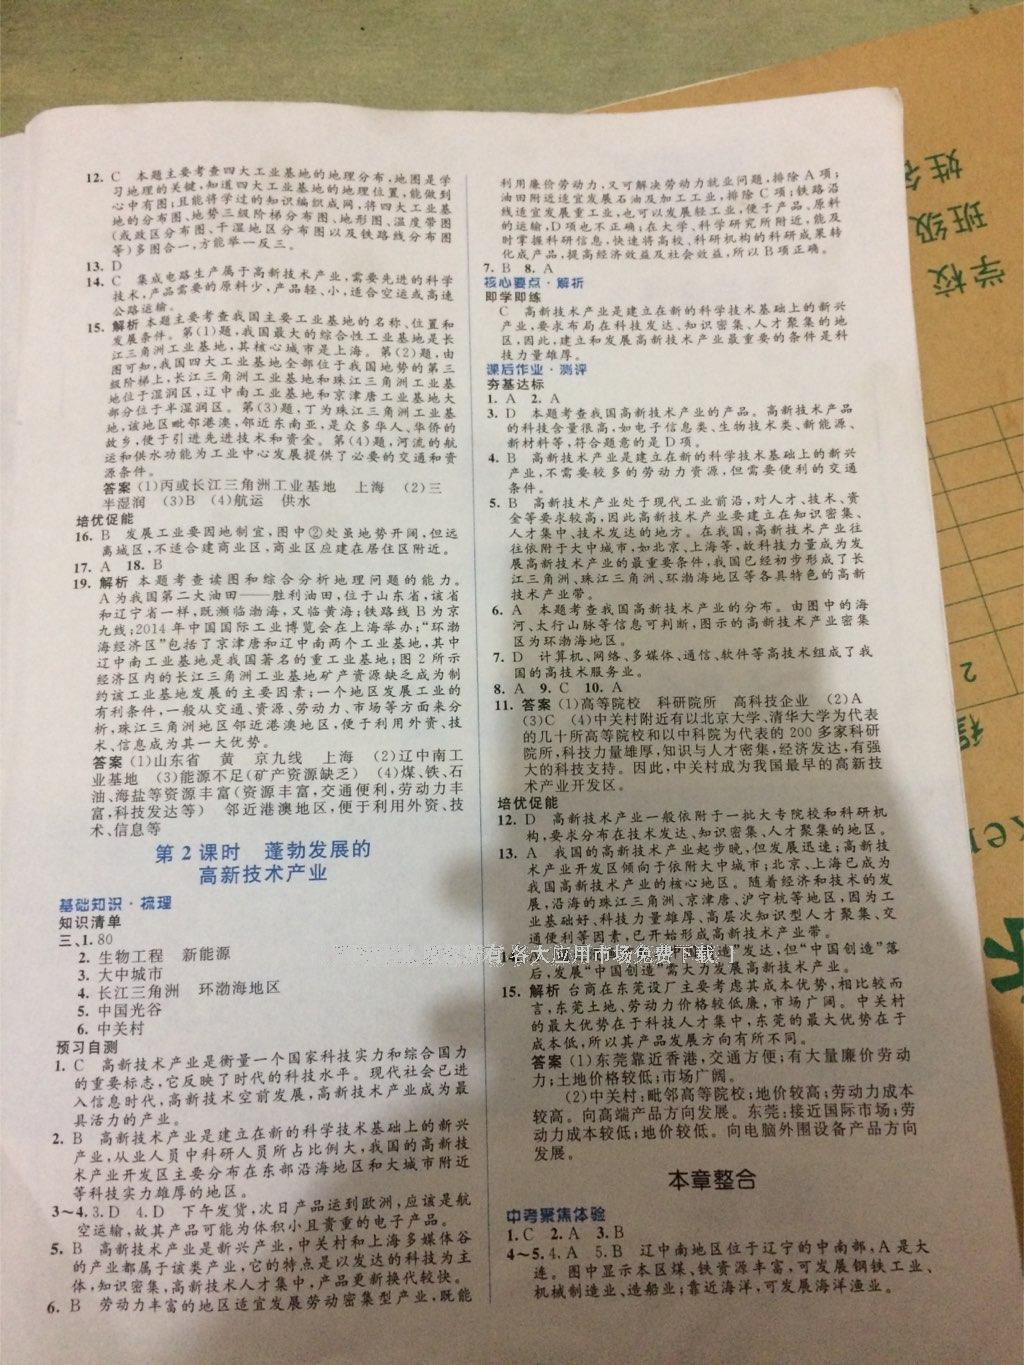 12. C 本题主要考查四大工业基地的地理分布,地图是学
习地理的关键,知道四大工业基地的地理位置,能做到
心中有图;且能将学过的知识编织成网,将四大工业基
地的分布图、地势三级阶梯分布图、地形图、温度带图
(或政区分布图、干湿地区分布图以及铁路线分布图
等)多图合一,方能举一反三。
13. D
14. C 集成电路生产属于高新技术产业,需要先进的科学
技术,产品需要的原料少,产品轻、小,适合空运或高速
公路运输。
15. 解析 本题主要考查我国主要工业基地的名称、位置和
发展条件。第(1)题,我国最大的综合性工业基地是长
江三角洲工业基地,其核心城市是上海。第(2)题,由
图可知,我国四大工业基地全部位于我国地势的第三
级阶梯上,长江三角洲工业基地和珠江三角洲工业基
地位于湿润区,辽中南工业基地和京津唐工业基地大
部分位于半湿润区。第(3)题,丁为珠江三角洲工业基
地,该地区毗邻港澳,邻近东南亚,是众多华人、华侨的
故乡,便于引进先进技术和资金。第(4)题,河流的航
运和供水功能为工业中心发展提供了必要的交通和资
源条件。
答案 (1)丙或长江三角洲工业基地 上海 (2)三
半湿润 (3)B (4)航运 供水
培优促能
16. B 发展工业要因地制宜,图中②处虽地势开阔,但远
离城区,不适合建商业区,商业区应建在居住区附近。
17. A 18. B
19. 解析 本题考查读图和综合分析地理问题的能力。
A为我国第二大油田——胜利油田,位于山东省,该省
和辽宁省一样,既濒临渤海,又临黄海;铁路线B为京
九线;2014年中国国际工业博览会在上海举办;“环渤
海经济区”包括了京津唐和辽中南两个工业基地,其中
辽中南工业基地是我国著名的重工业基地;图2所示
经济区内的长江三角洲工业基地矿产资源缺乏成为制
约该工业基地发展的主要因素;一个地区发展工业的
有利条件,一般从交通、资源、劳动力、市场等方面来分
析,珠江三角洲地区邻近港澳地区,便于利用外资、技
术、信息成为其一大优势。
答案 (1)山东省 黄 京九线 上海 (2)辽中南工
业基地 (3)能源不足(矿产资源缺乏) (4)煤、铁、石
油、海盐等资源丰富(资源丰富,交通便利,劳动力丰
富,科技发达等) 邻近港澳地区,便于利用外资、技
术、信息等
第2课时 蓬勃发展的
高新技术产业
基础知识·梳理
知识清单
三、1. 80
2. 生物工程 新能源
3. 大中城市
4. 长江三角洲 环渤海地区
5. 中国光谷
6. 中关村
预习自测
1. C 高新技术产业是衡量一个国家科技实力和综合国力
的重要标志,它反映了时代的科技水平。现代社会已进
入信息时代,高新技术空前发展,高新技术产业成为最
具活力的产业。
2. B 高新技术产业是建立在新的科学技术基础上的新兴
产业,从业人员中科研人员所占比例大,我国的高新技
术产业开发区主要分布在东部沿海地区和大城市附近
等科技实力雄厚的地区。
3~4. 3. D 4. D 下午发货,次日产品运到欧洲,应该是航
空运输,故其产品可能为体积小且贵重的电子产品。
5. B 高新技术产业是新兴产业,中关村和上海多媒体谷
的产业都属于该类产业,它的特点是以发达的科技为主
体,知识密集,高新技术人才集中,产品更新换代较快。
6. B 劳动力丰富的地区适宜发展劳动密集型产业,既能
利用廉价劳动力,又可解决劳动力就业问题,排除A项;
油田附近适宜发展石油及加工工业,排除C项;铁路沿
线适宜发展重工业,也可以发展轻工业,便于产品、原料
的运输,D项也不正确;在大学、科学研究所附近,能及
时掌握科研信息,快速将高校、科研机构的科研成果转
化成产品,提高经济效益及社会效益,所以B项正确。
7. B 8. A
核心要点·解析
即学即练
C 高新技术产业是建立在新的科学技术基础上的新兴
产业,要求布局在科技发达、知识密集、人才聚集的地
区,因此,建立和发展高新技术产业最重要的条件是科
技力量雄厚。
课后作业·测评
夯基达标
1. A 2. A
3. D 本题考查我国高新技术产业的产品。高新技术产品
的科技含量很高,如电子信息类、生物技术类、新能源、
新材料等,符合题意的是D项。
4. B 高新技术产业是建立在新的科学技术基础上的新兴
产业,不需要较多的劳动力资源,但需要便利的交通
条件。
5. B 高新技术产业处于现代工业前沿,对人才、技术、资
金等要求较高,因此高新技术产业要建立在知识密集、
人才集中、技术发达的地方。在我国,高新技术产业往
往依附于大中城市,如北京、上海等,故科技力量成为发
展高新技术产业的最重要条件,我国已经初步形成了长
江三角洲、珠江三角洲、环渤海地区等各具特色的高新
技术产业带。
6. A 本题考查我国高新技术产业的分布。由图中的海
河、太行山脉等信息可判断,图示的高新技术产业密集
区为环渤海地区。
7. D 计算机、网络、多媒体、通信、软件等高技术组成了我
国的高技术服务业。
8. A 9. C 10. A
11. 答案 (1)高等院校 科研院所 高科技企业 (2)A
(3)C (4)中关村附近有以北京大学、清华大学为代表
的几十所高等院校和以中科院为代表的200多家科研
院所,科技力量雄厚,知识与人才密集,经济发达,有强
大的科技支持。因此,中关村成为我国最早的高新技
术产业开发区。
培优促能
12. D 高新技术产业一般依附于一批大专院校和科研机
构,要求分布在技术发达、知识密集、人才聚集的地区。
13. A 我国的高新技术产业起步晚,但发展迅速;高新技
术产业开发区倾向于依附大中城市;北京、上海已成为
我国高新技术产业的核心地区。随着经济和技术的发
展,沿海的珠江三角洲、京津唐、沪宁杭等地区,因为工
业基础好、科技力量雄厚、高层次知识型人才聚集、交
通便利等因素,已开始形成高新技术产业带。
14. 造”发达,但“中国创造”落
各大应用市场免费下载
后,发展“中国创造”需大力发展高新技术产业。
15. 解析 台商在东莞设厂主要考虑其成本优势,相比较而
言,东莞土地、劳动力价格较低廉,市场广阔。中关村
的最大优势在于科技人才集中,东莞的最大优势在于
成本低,所以其产品发展方向有所不同。
答案 (1)东莞靠近香港,交通方便;有大量廉价劳动
力;土地价格较低;市场广阔。
(2)中关村:毗邻高等院校;地价较高;劳动力成本
较高。向高端产品方向发展。东莞:接近国际市场;劳
动力成本较低;地价较低。向电脑外围设备产品方向
发展。
本章整合
中考聚焦体验
1. C 2. A 3. B
4~5. 4. A 5. B 辽中南地区位于辽宁的中南部,A是大
连。图中显示本区煤、铁资源丰富,可发展钢铁工业、
机械制造业、造船业;靠近海洋,可发展海洋渔业。
班级
学校